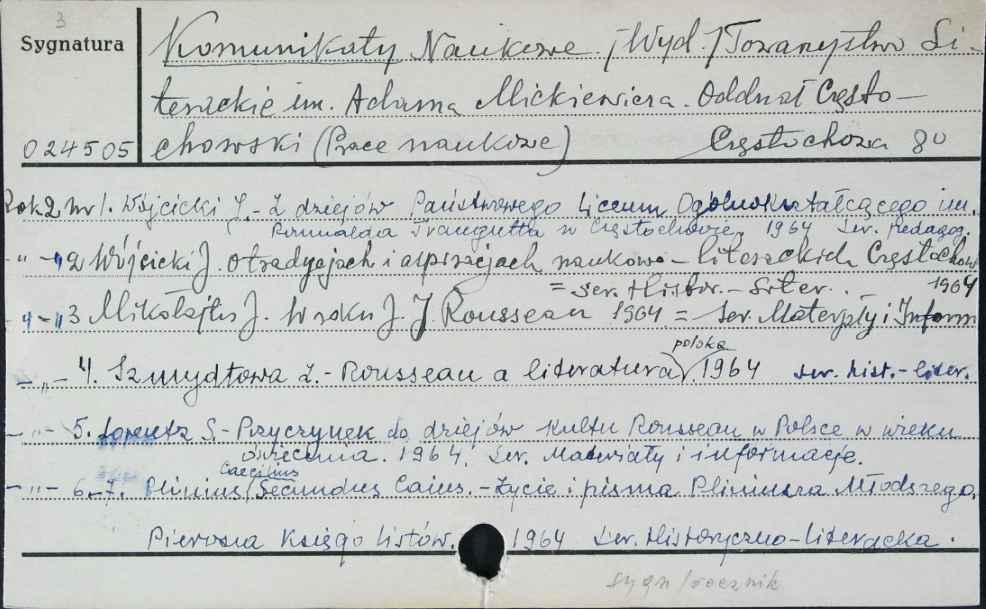 3
Sygnatura
Komunikaty Naukowe. [Wyd.] Towarzystwo Li-
terackie im. Adama Mickiewicza. Oddział Często-
024505 chowski (Prace naukowe) Częstochowa 80
Rok 2 nr 1. Wójcicki J. - Z dziejów Państwowego Liceum Ogólnokształcącego im.
Romualda Traugutta w Częstochowie, 1964 Ser. Pedagog.
-"- -"- 2 Wójcicki J. O tradycjach i aspiracjach naukowo - literackich Częstochow
= Ser. Histor. - Liter. 1964
-"- -"- 3 Mikołajtis J. W roku J. J. Rousseau 1964 = Ser. Materyały i Inform
-"- 4. Szmydtowa Z. - Rousseau a literatura polska 1964 ser. hist. - liter.
-"- 5. Lorentz S. - Przyczynek do dziejów kultu Rousseau w Polsce w wieku
oświecenia. 1964. Ser. Materiały i informacje.
-"- 6-7. Plinius Caecilius Secundus Caius. - Życie i pisma Pliniusza Młodszego.
Pierwsza Księga listów. 1964 Ser. Historyczno-literacka.
sygn / rocznik